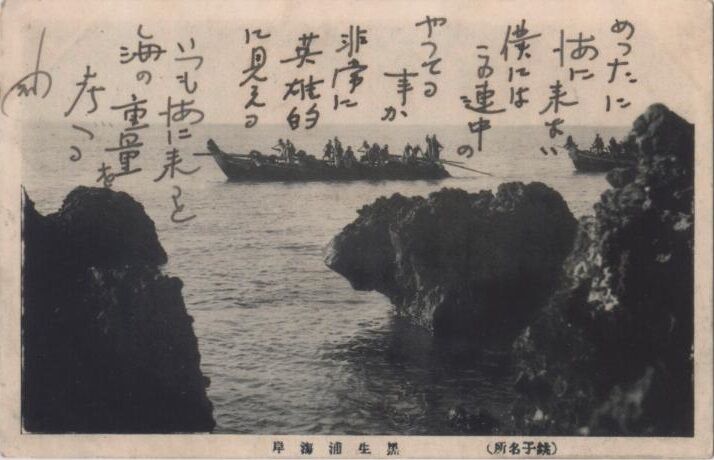 めったに
海に来ない
僕には
この連中の
やってる
事が
非常に
英雄的
に見える
いつも海に来ると
海の重量を
考へる
(銚子名所)
黒生浦海岸